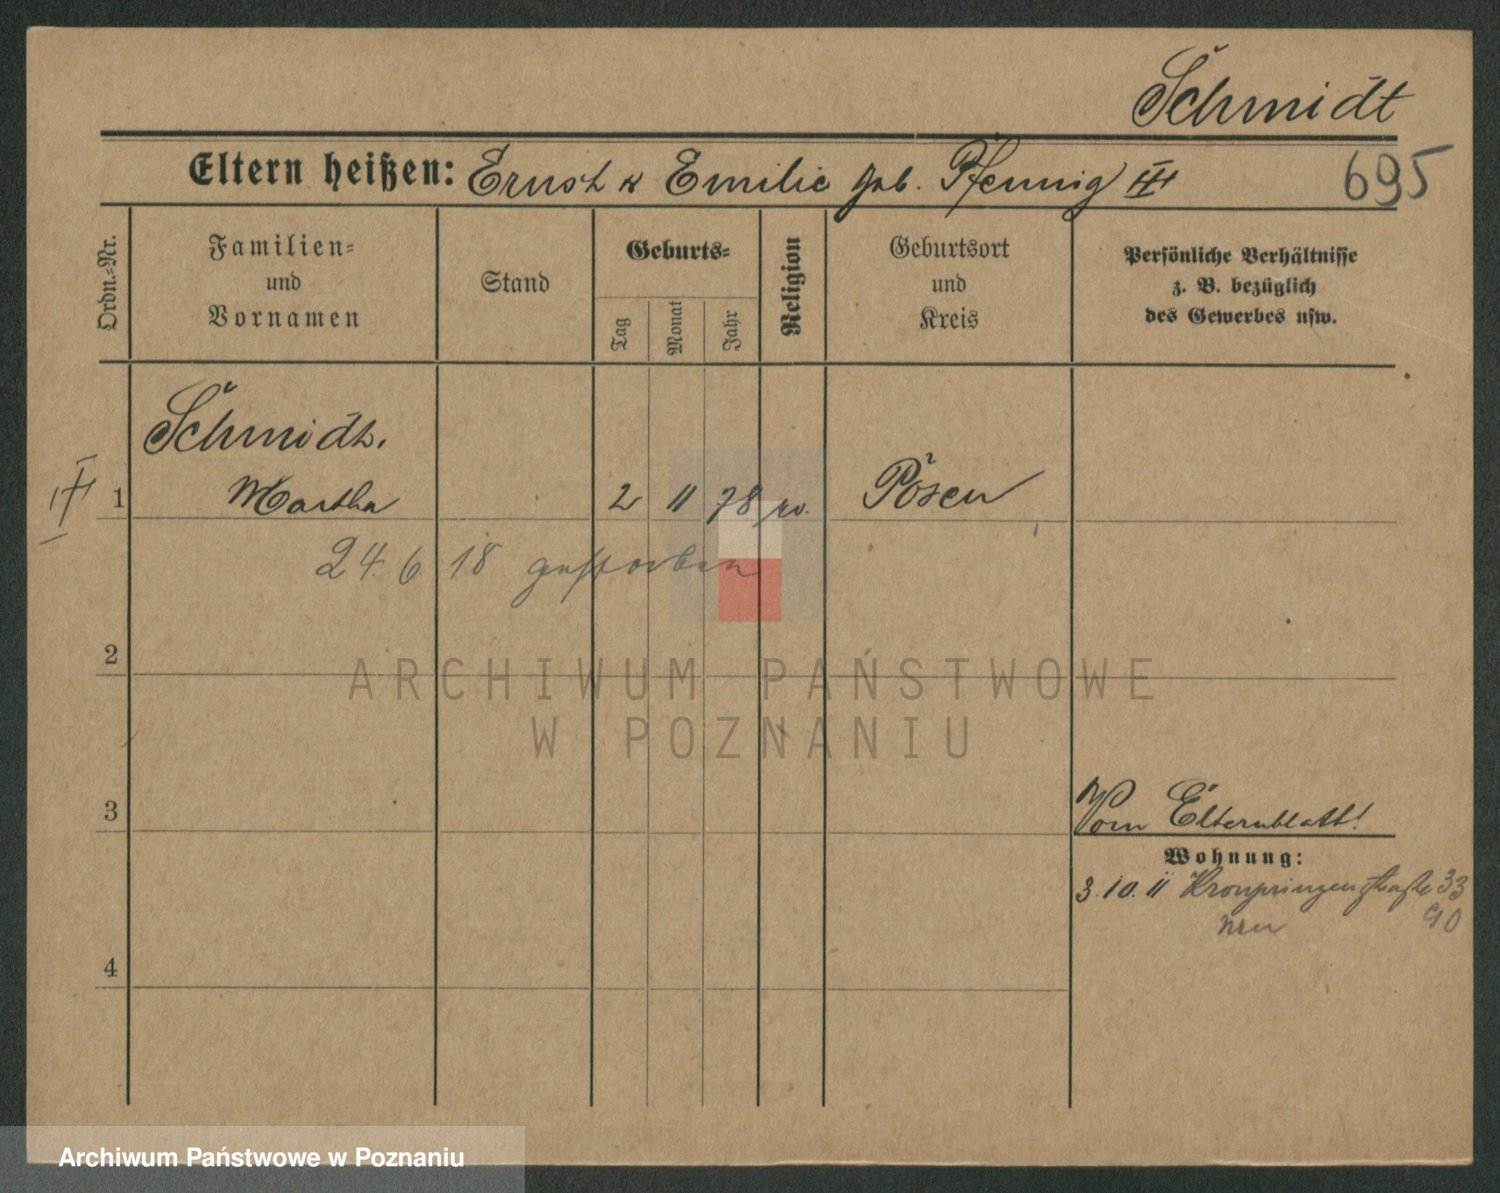 Schmidt
Eltern heißen: Ernst u Emilie geb. Pfennig III
695
Ordn.-Nr.
Familien-
und
Vornamen
Stand
Geburts-
Tag
Monat
Jahr
Religion
Geburtsort
und
Kreis
Persönliche Verhältnisse
z. B. bezüglich
des Gewerbes usw.
Schmidt.
1 Martha 2 11 78 ev. Posen
24. 6 18 gestorben
2
3
Vom Elternblatt!
Wohnung:
3. 10. 11 Kronprinzenstraße 33
neu 90
4
ARCHIWUM PAŃSTWOWE
W POZNANIU
Archiwum Państwowe w Poznaniu